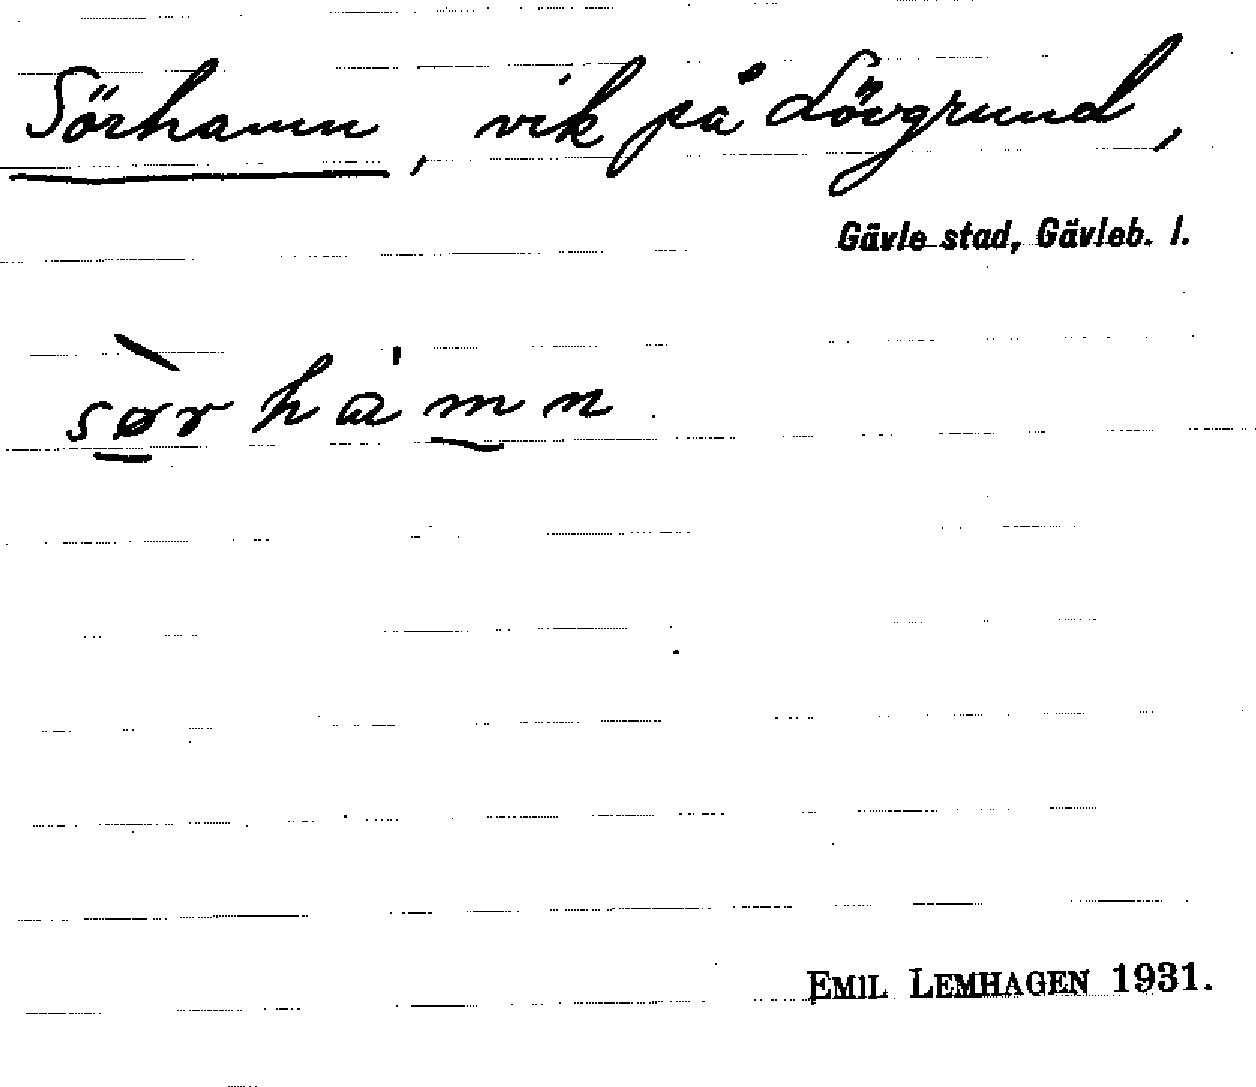 Sörhamn, vik på Lövgrund,
Gävle stad, Gävleb. l.
sø̀rhà̍mn.
EMIL LEMHAGEN 1931.